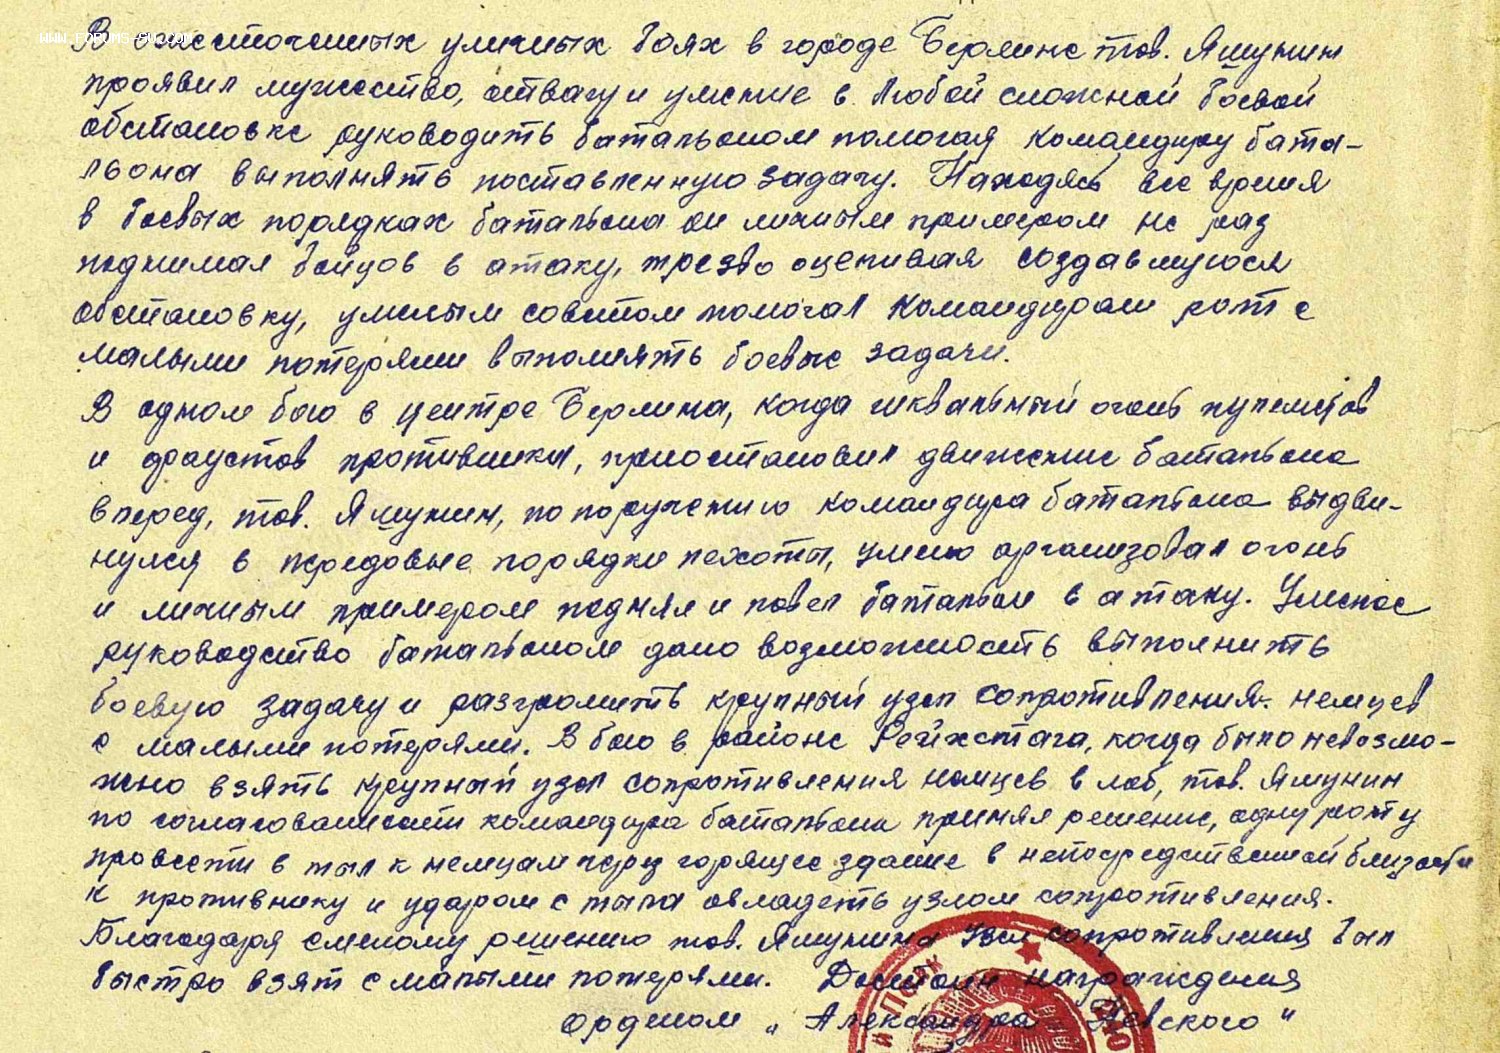 WWW.FORUMS-SU.COM
В ожесточенных уличных боях в городе Берлине тов. Ямунин
проявил мужество, отвагу и умение в любой сложной боевой
обстановке руководить батальоном помогая командиру бата-
льона выполнять поставленную задачу. Находясь все время
в боевых порядках батальона он личным примером не раз
поднимал бойцов в атаку, трезво оценивая создавшуюся
обстановку, умелым советом помогал командирам рот с
малыми потерями выполнять боевые задачи.
В одном бою в центре Берлина, когда шквальный огонь пулеметов
и фаустов противника, приостановил движение батальона
вперед, тов. Ямунин, по поручению командира батальона выдви-
нулся в передовые порядки пехоты, умело организовал огонь
и личным примером поднял и повел батальон в атаку. Умелое
руководство батальоном дало возможность выполнить
боевую задачу и разгромить крупный узел сопротивления немцев
с малыми потерями. В бою в районе Рейхстага, когда было невозмо-
жно взять крупный узел сопротивления немцев в лоб, тов. Ямунин
по согласованности командира батальона принял решение, одну роту
провести в тыл к немцам через горящее здание в непосредственной близости
к противнику и ударом с тыла овладеть узлом сопротивления.
Благодаря смелому решению тов. Ямунина узел сопротивления был
быстро взят с малыми потерями. Достоин награждения
орденом „Александра Невского"